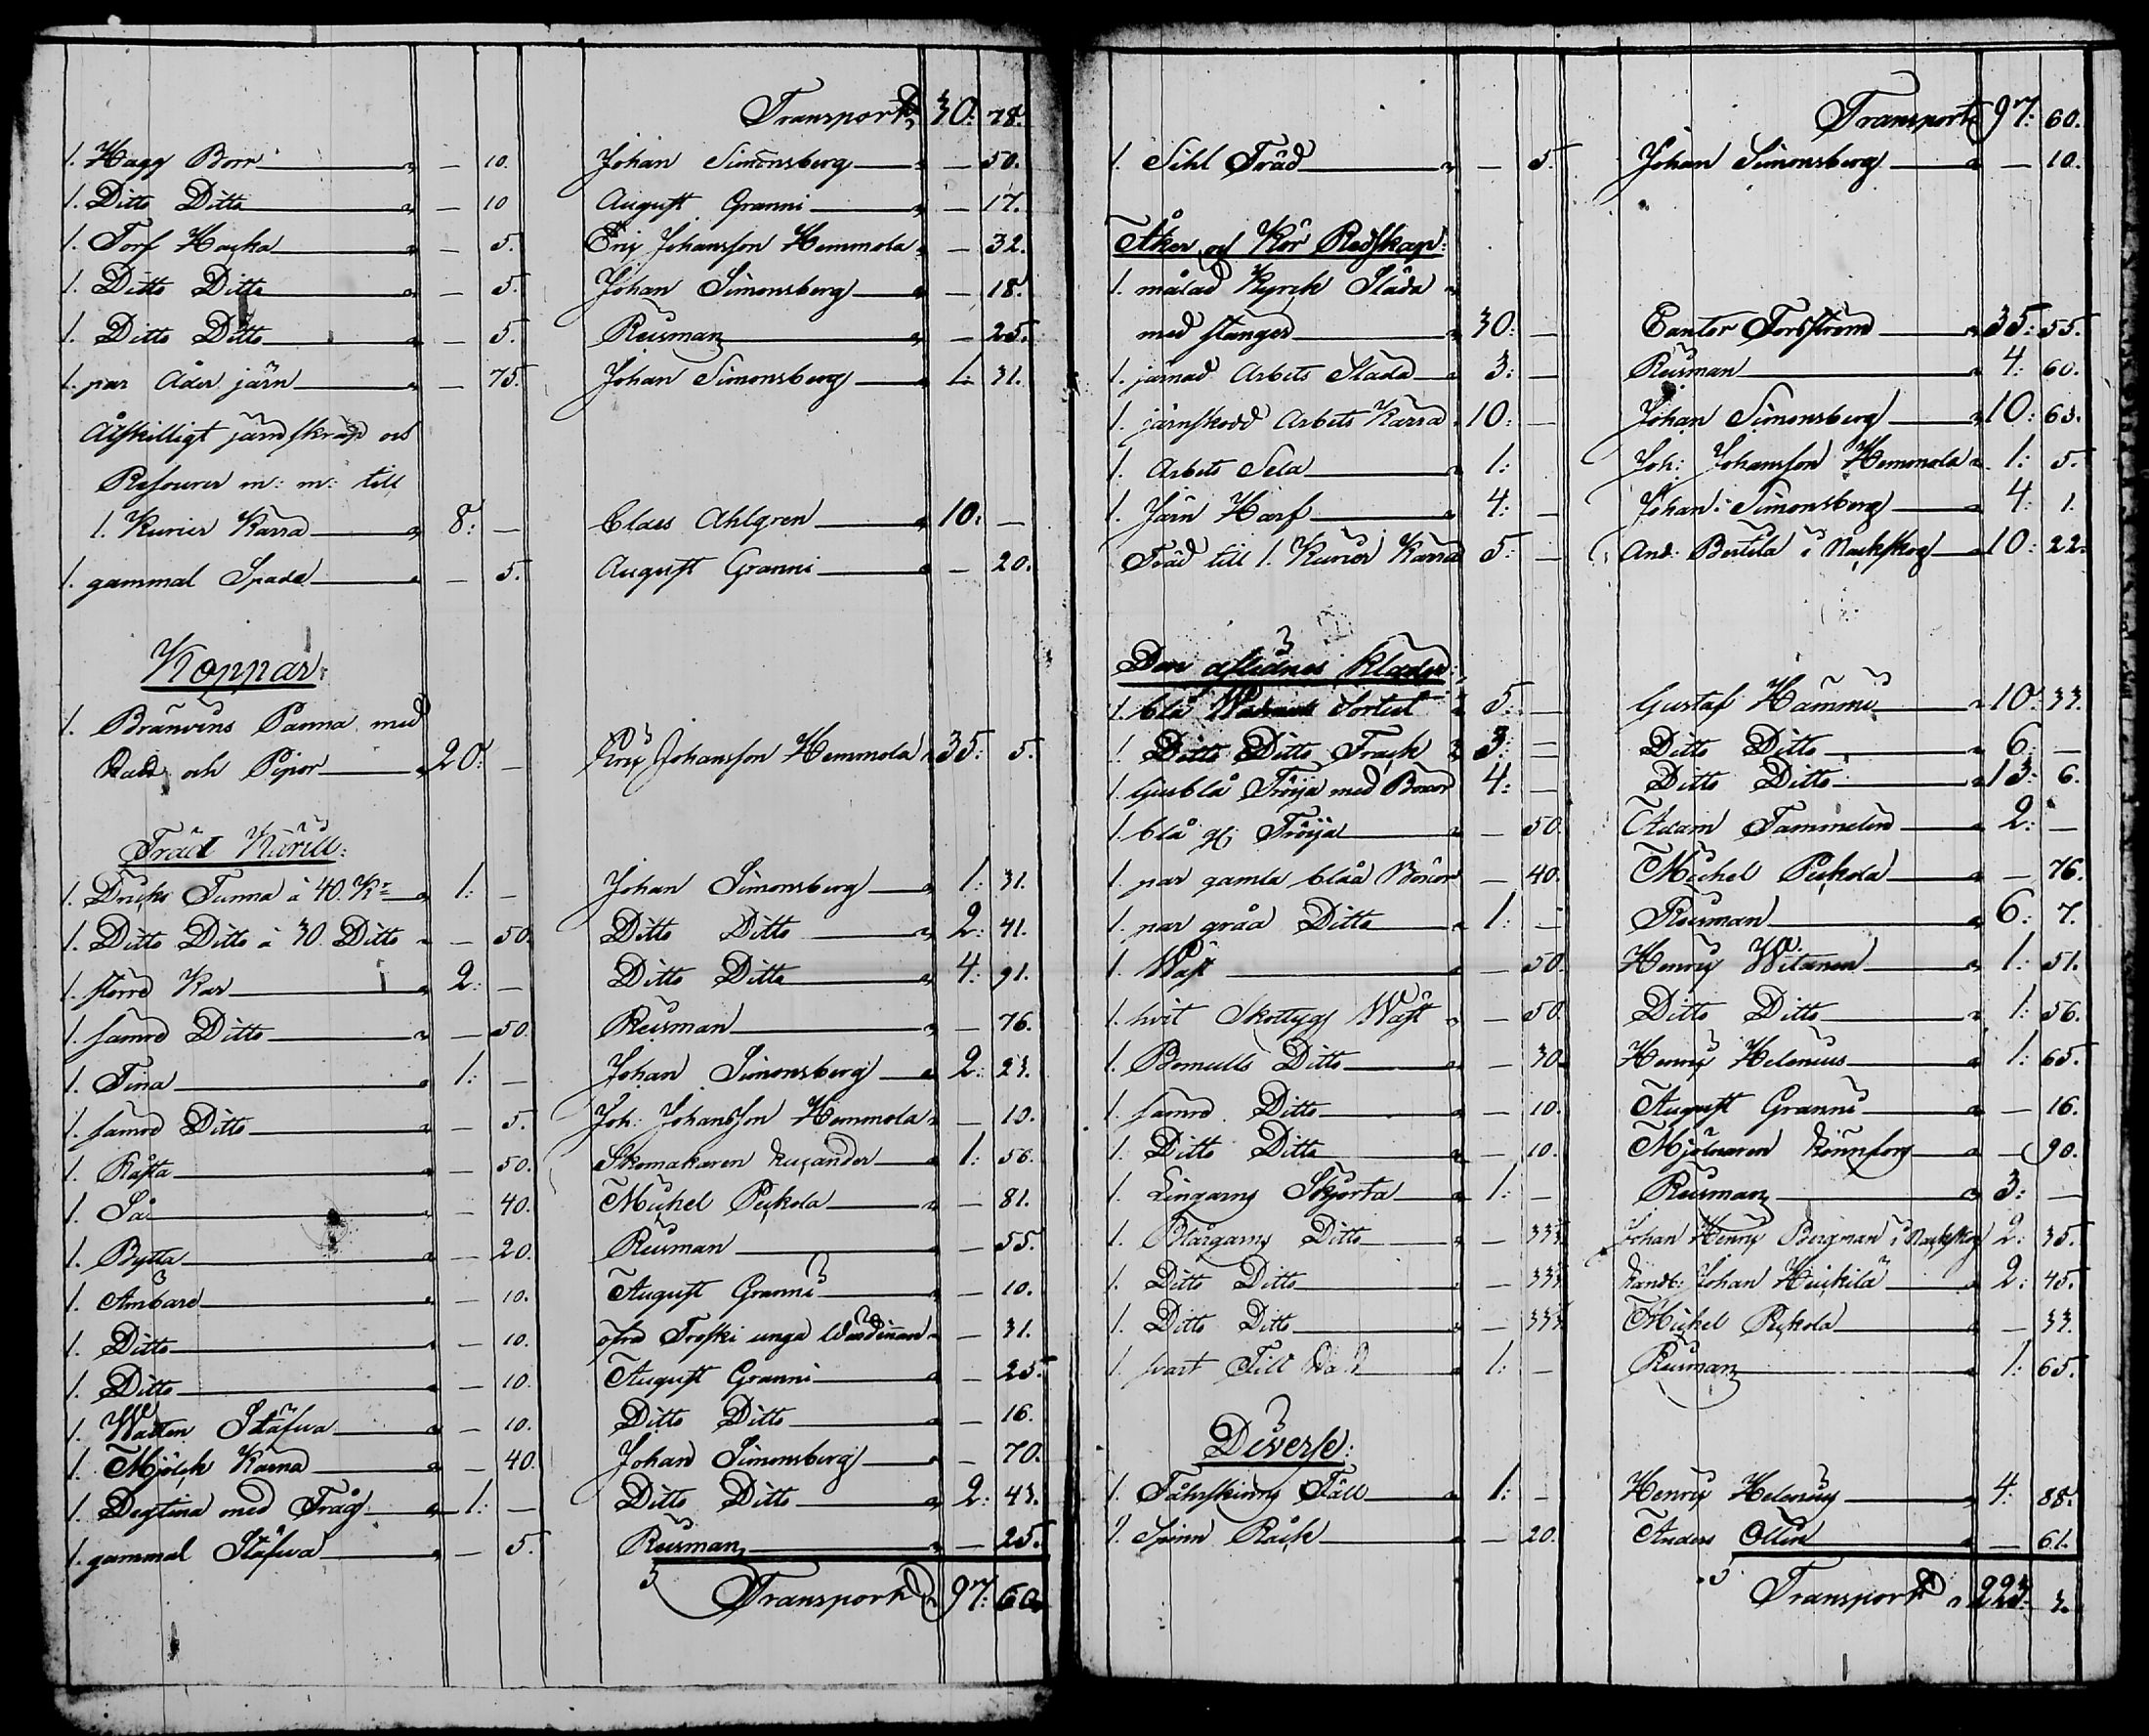 Transport 30: 78.
1. Hagg Borr — 10. Johan Simonsberg — 50.
1. Ditto Ditto — 10 August Granni — 17.
1. Torf Hacka — 5. Eriz Johansson Hemmola — 32.
1. Ditto Ditto — 5. Johan Simonsberg — 18.
1. Ditto Ditto — 5. Reisman — 25.
1. par Åder järn — 75. Johan Simonsberg 1: 31.
Åtskilligt järnskrap och
Resourer m: m: till
1. Kurier Karra 8: — Claes Ahlgren 10: —
1. gammal Spada — 5. August Granni — 20.
Koppar:
1. Bränvins Panna med
och Pipor 20: — Johansson Hemmola 35: 5.
Träd Käríll:
1. Dricks Tunna à 40. Kr 1: — Johan Simonsberg 1: 31.
1. Ditto Ditto à 30. Ditto — 50. Ditto Ditto 2: 41.
1. större Kar 2: — Ditto Ditto 4: 91.
1. sämre Ditto — 50. Reisman — 76.
1. Tina 1: — Johan Simonsberg 2: 23.
1. sämre Ditto — 5. Joh: Johansson Hemmola — 10.
1. — 50. Skomakaren 1: 56.
1. Så — 40. Michel Peckola — 81.
1. Bytta — 20. Reisman — 55.
1. Ämbare — 10. August Granni — 10.
1. Ditto — 10. öfre Troski unga Wärdinnan — 31.
1. Ditto — 10. August Granni — 25.
1. Watten Stäfva — 10. Ditto Ditto — 16.
1. Mjölk Kärna — 40. Johan Simonsberg — 70.
1. Degtina med Tråg 1: — Ditto Ditto 2: 43.
1. gammal Stäfva — 5. Reisman — 25.
Transport 97: 60.
Transport 97: 60.
1. Sihl Träd — 5. Johan Simonsberg — 10.
Åker och Kör Redskap:
1. målad Kyrck Släda
med stänger 30: — Cantor Forsström 35: 55.
1. järnad Arbets Släda 3: — Reisman 4: 60.
1. järnskodd Arbets Kärra 10: — Johan Simonsberg 10: 63.
1. Arbets Sela 1: Joh: Johansson Hemmola 1: 5.
1. Järn Harf 4: — Johan Simonsberg 4: 1.
Träd till 1. Kurier Kärra 5: — And: Bertila i Nackskog 10: 22.
Den aflidnes Kläder:
1. blå Sortut 5: — Gustaf Hammi 10: 33.
1. Ditto Ditto Frack 3: — Ditto Ditto 6: —
1. ljusblå Tröja med Böxor 4: — Ditto Ditto 13: 6.
1. blå gl: Tröja — 50. Adam Tammelin 2: —
1. par gamla blåa Böxor — 40. Michel Peckola — 76.
1. par gråa Ditto 1: — Reisman 6: 7.
1. Wäst — 50. Henrix Witanen 1: 51.
1. hvit Skottygs Wäst — 50. Ditto Ditto 1: 56.
1. Bomulls Ditto — 30. Henrix Helenius 1: 65.
1. sämre Ditto — 10. August Granni — 16.
1. Ditto Ditto — 10. Mjölnaren Rönnfors — 90.
1. Lingarns Skjorta 1: — Reisman 3: —
1. Blårgarns Ditto — 33⅓ Johan Henrix Bergman i Nackskog 2: 35.
1. Ditto Ditto — 33⅓ Landb: Johan Heickilä 2: 45.
1. Ditto Ditto — 33⅓ Michel Peckola — 33.
1. svart Filt Hatt 1: — Reisman 1: 65.
Diverse:
1. Fårskinns Fäll 1: — Henrix Helenius 4: 88.
1. Spinn Råck — 20. Anders Ollin — 61.
Transport 223: 3.